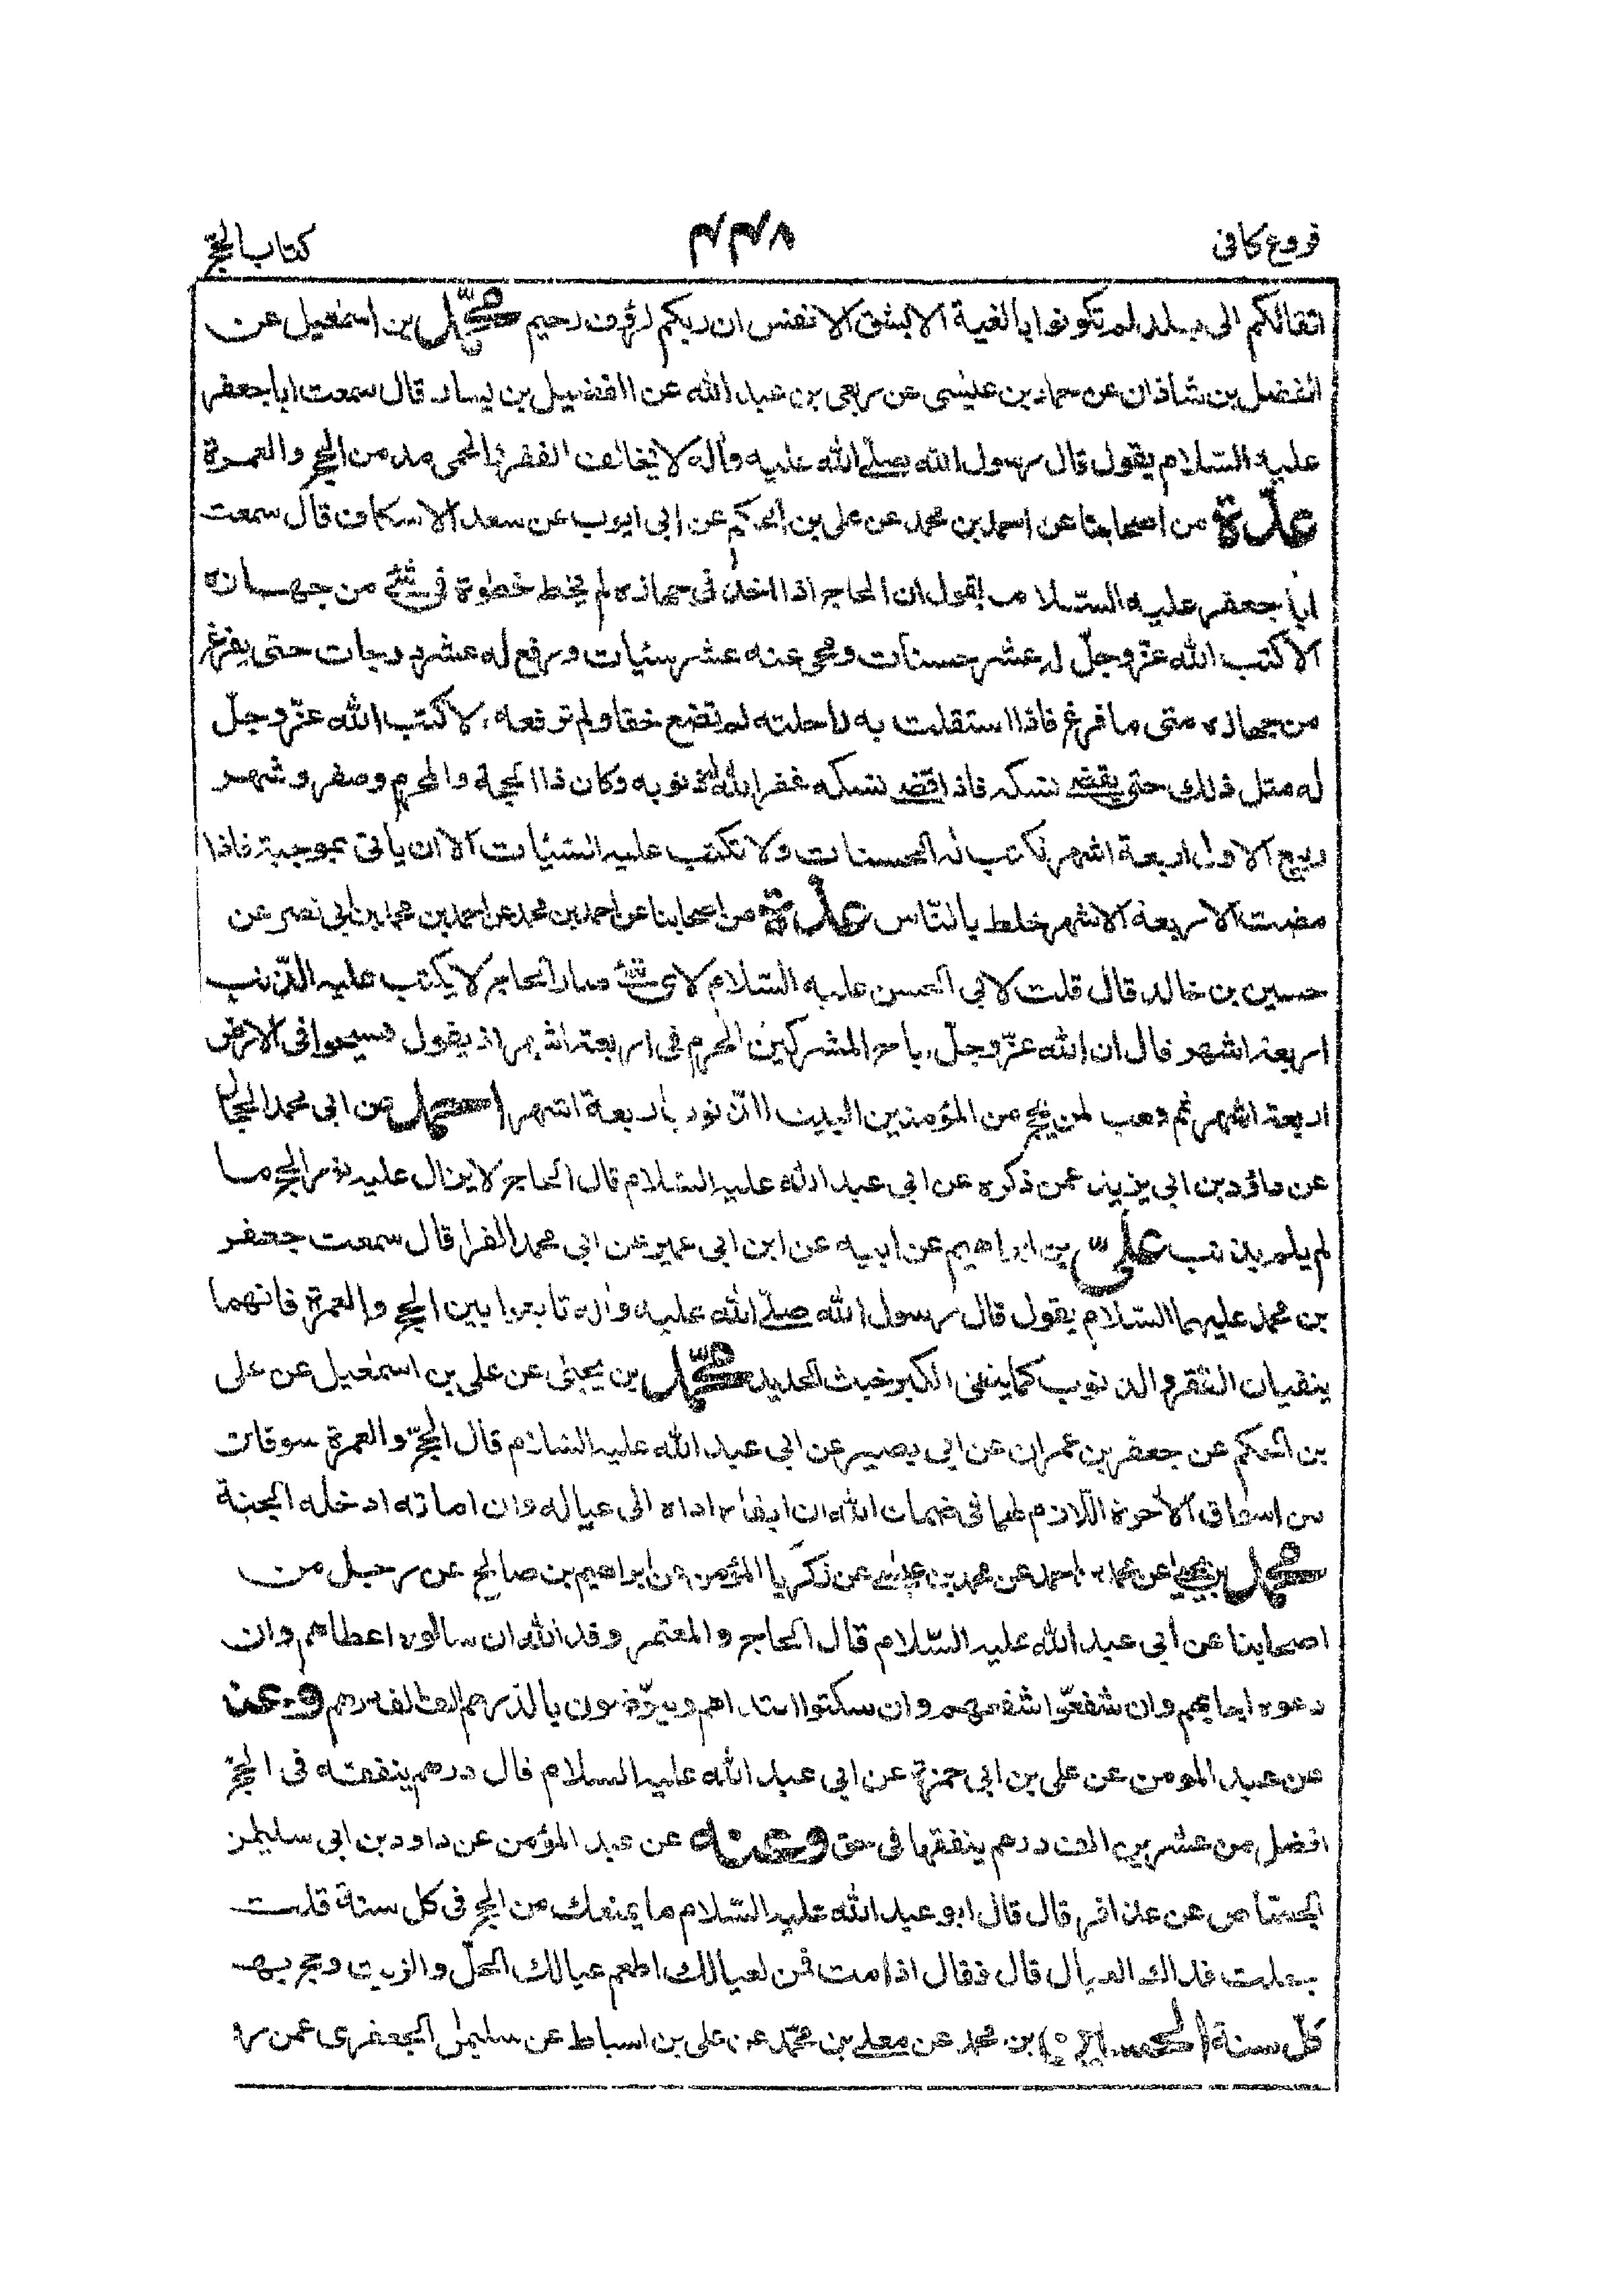 فروع كافى
٢٣٨
كتاب الحج
اثقالكم الى بلد لم تكونوا بالغيه الا بشق الانفس ان ربكم لرؤف رحيم محمّد بن اسمٰعيل عن
الفضل بن شاذان عن حماد بن عيسى عن ربعى بن عبد الله عن الفضيل بن يسار قال سمعت ابا جعفر
عليه السّلام يقول قال رسول الله صلّى الله عليه وآله لا يخالف الفقر والحمى مدمن الحج والعمرة
عدّة من اصحابنا عن احمد بن محمد عن على بن الحكم عن ابى ايوب عن سعد الاسكاف قال سمعت
ابا جعفر عليه السّلام يقول ان الحاج اذا اخذ فى جهازه لم يخط خطوة فى شئ من جهازه
الا كتب الله عزّ وجلّ له عشر حسنات ومحى عنه عشر سيئات ورفع له عشر درجات حتى يفرغ
من جهازه متى ما فرغ فاذا استقلت به راحلته لم تضع خفا ولم ترفعه الا كتب الله عزّ وجلّ
له مثل ذلك حتى يقضى نسكه فاذا قضى نسكه غفر الله له ذنوبه وكان ذا الحجة والمحرم وصفر وشهر
ربيع الاول اربعة اشهر تكتب له الحسنات ولا تكتب عليه السّيئات الا ان يأتى بموجبة فاذا
مضت الاربعة الاشهر خلط بالنّاس عدّة من اصحابنا عن احمد بن محمد عن احمد بن محمد بن ابى نصر عن
حسين بن خالد قال قلت لابى الحسن عليه السّلام لاى شئ صار الحاج لا يكتب عليه الذّنب
اربعة اشهر قال ان الله عزّ وجلّ اباح المشركين الحرم فى اربعة اشهر اذ يقول فسيحوا فى الارض
اربعة اشهر ثم وهب لمن يحج من المؤمنين البيت الذّنوب اربعة اشهر احمد عن ابى محمد الحجال
عن داؤد بن ابى يزيد عمن ذكره عن ابى عبد الله عليه السّلام قال الحاج لا يزال عليه نور الحج ما
لم يلم بذنب علىّ بن ابراهيم عن ابيه عن ابن ابى عمير عن ابى محمد الفرا قال سمعت جعفر
بن محمد عليهما السّلام يقول قال رسول الله صلّى الله عليه وآله تابعوا بين الحج والعمرة فانهما
ينفيان الفقر والذنوب كما ينفى الكير خبث الحديد محمّد بن يحيى عن على بن اسمٰعيل عن على
بن الحكم عن جعفر بن عمران عن ابى بصير عن ابى عبد الله عليه السّلام قال الحجّ والعمرة سوقان
من اسواق الآخرة اللّازم لهما فى ضمان الله ان ابقاه اداه الى عياله وان اماته ادخله الجنة
محمّد بن يحيى عن محمد بن احمد عن محمد بن عيسى عن زكريا المؤمن عن ابراهيم بن صالح عن رجل من
اصحابنا عن ابى عبد الله عليه السّلام قال الحاج والمعتمر وفد الله ان سالوه اعطاهم وان
دعوه اجابهم وان شفعوا شفعهم وان سكتوا ابتداهم ويعوّضون بالدرهم الف الف درهم وعن
عن عبد المومن عن على بن ابى حمزة عن ابى عبد الله عليه السلام قال درهم ينفقه فى الحجّ
افضل من عشرين الف درهم ينفقها فى حق وعنه عن عبد المؤمن عن داود بن ابى سليمن
الجصّاص عن عذافر قال قال ابو عبد الله عليه السّلام ما يمنعك من الحج فى كل سنة قلت
جعلت فداك العيال قال فقال اذا مت فمن لعيالك اطعم عيالك الخلّ والزيت وحج بهم
كلّ سنة الحسين بن محمد عن معلى بن محمّد عن على بن اسباط عن سليمٰن الجعفرى عمن رو